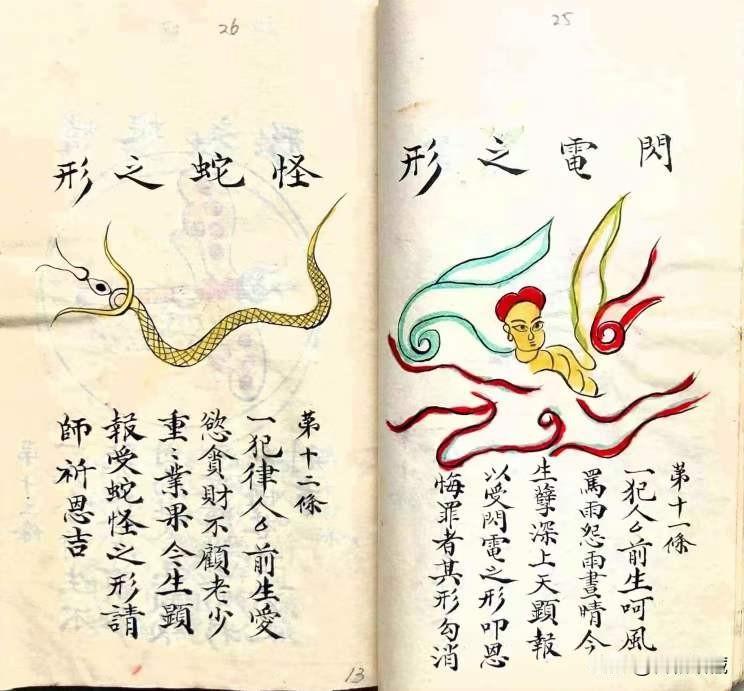 25
閃電之形
第十一條
一犯人厶前生呵風
罵雨怨雨晝晴今
生孽深上天顕報
以受閃電之形叩恩
悔罪者其形勾消
26
怪蛇之形
第十二條
一犯律人厶前生愛
慾貪財不顧老少
重〻業果今生顕
報受蛇怪之形請
師祈恩吉
13
藏